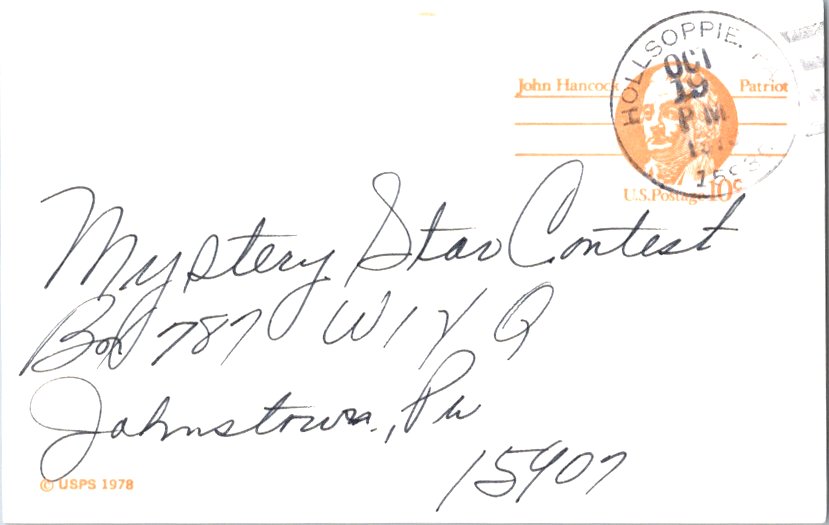 HOLLSOPPLE, PA
OCT
19
PM
John Hancock Patriot
U.S. Postage 10c
Mystery Star Contest
Box 787 WIYQ
Johnstown, Pa
15907
© USPS 1978